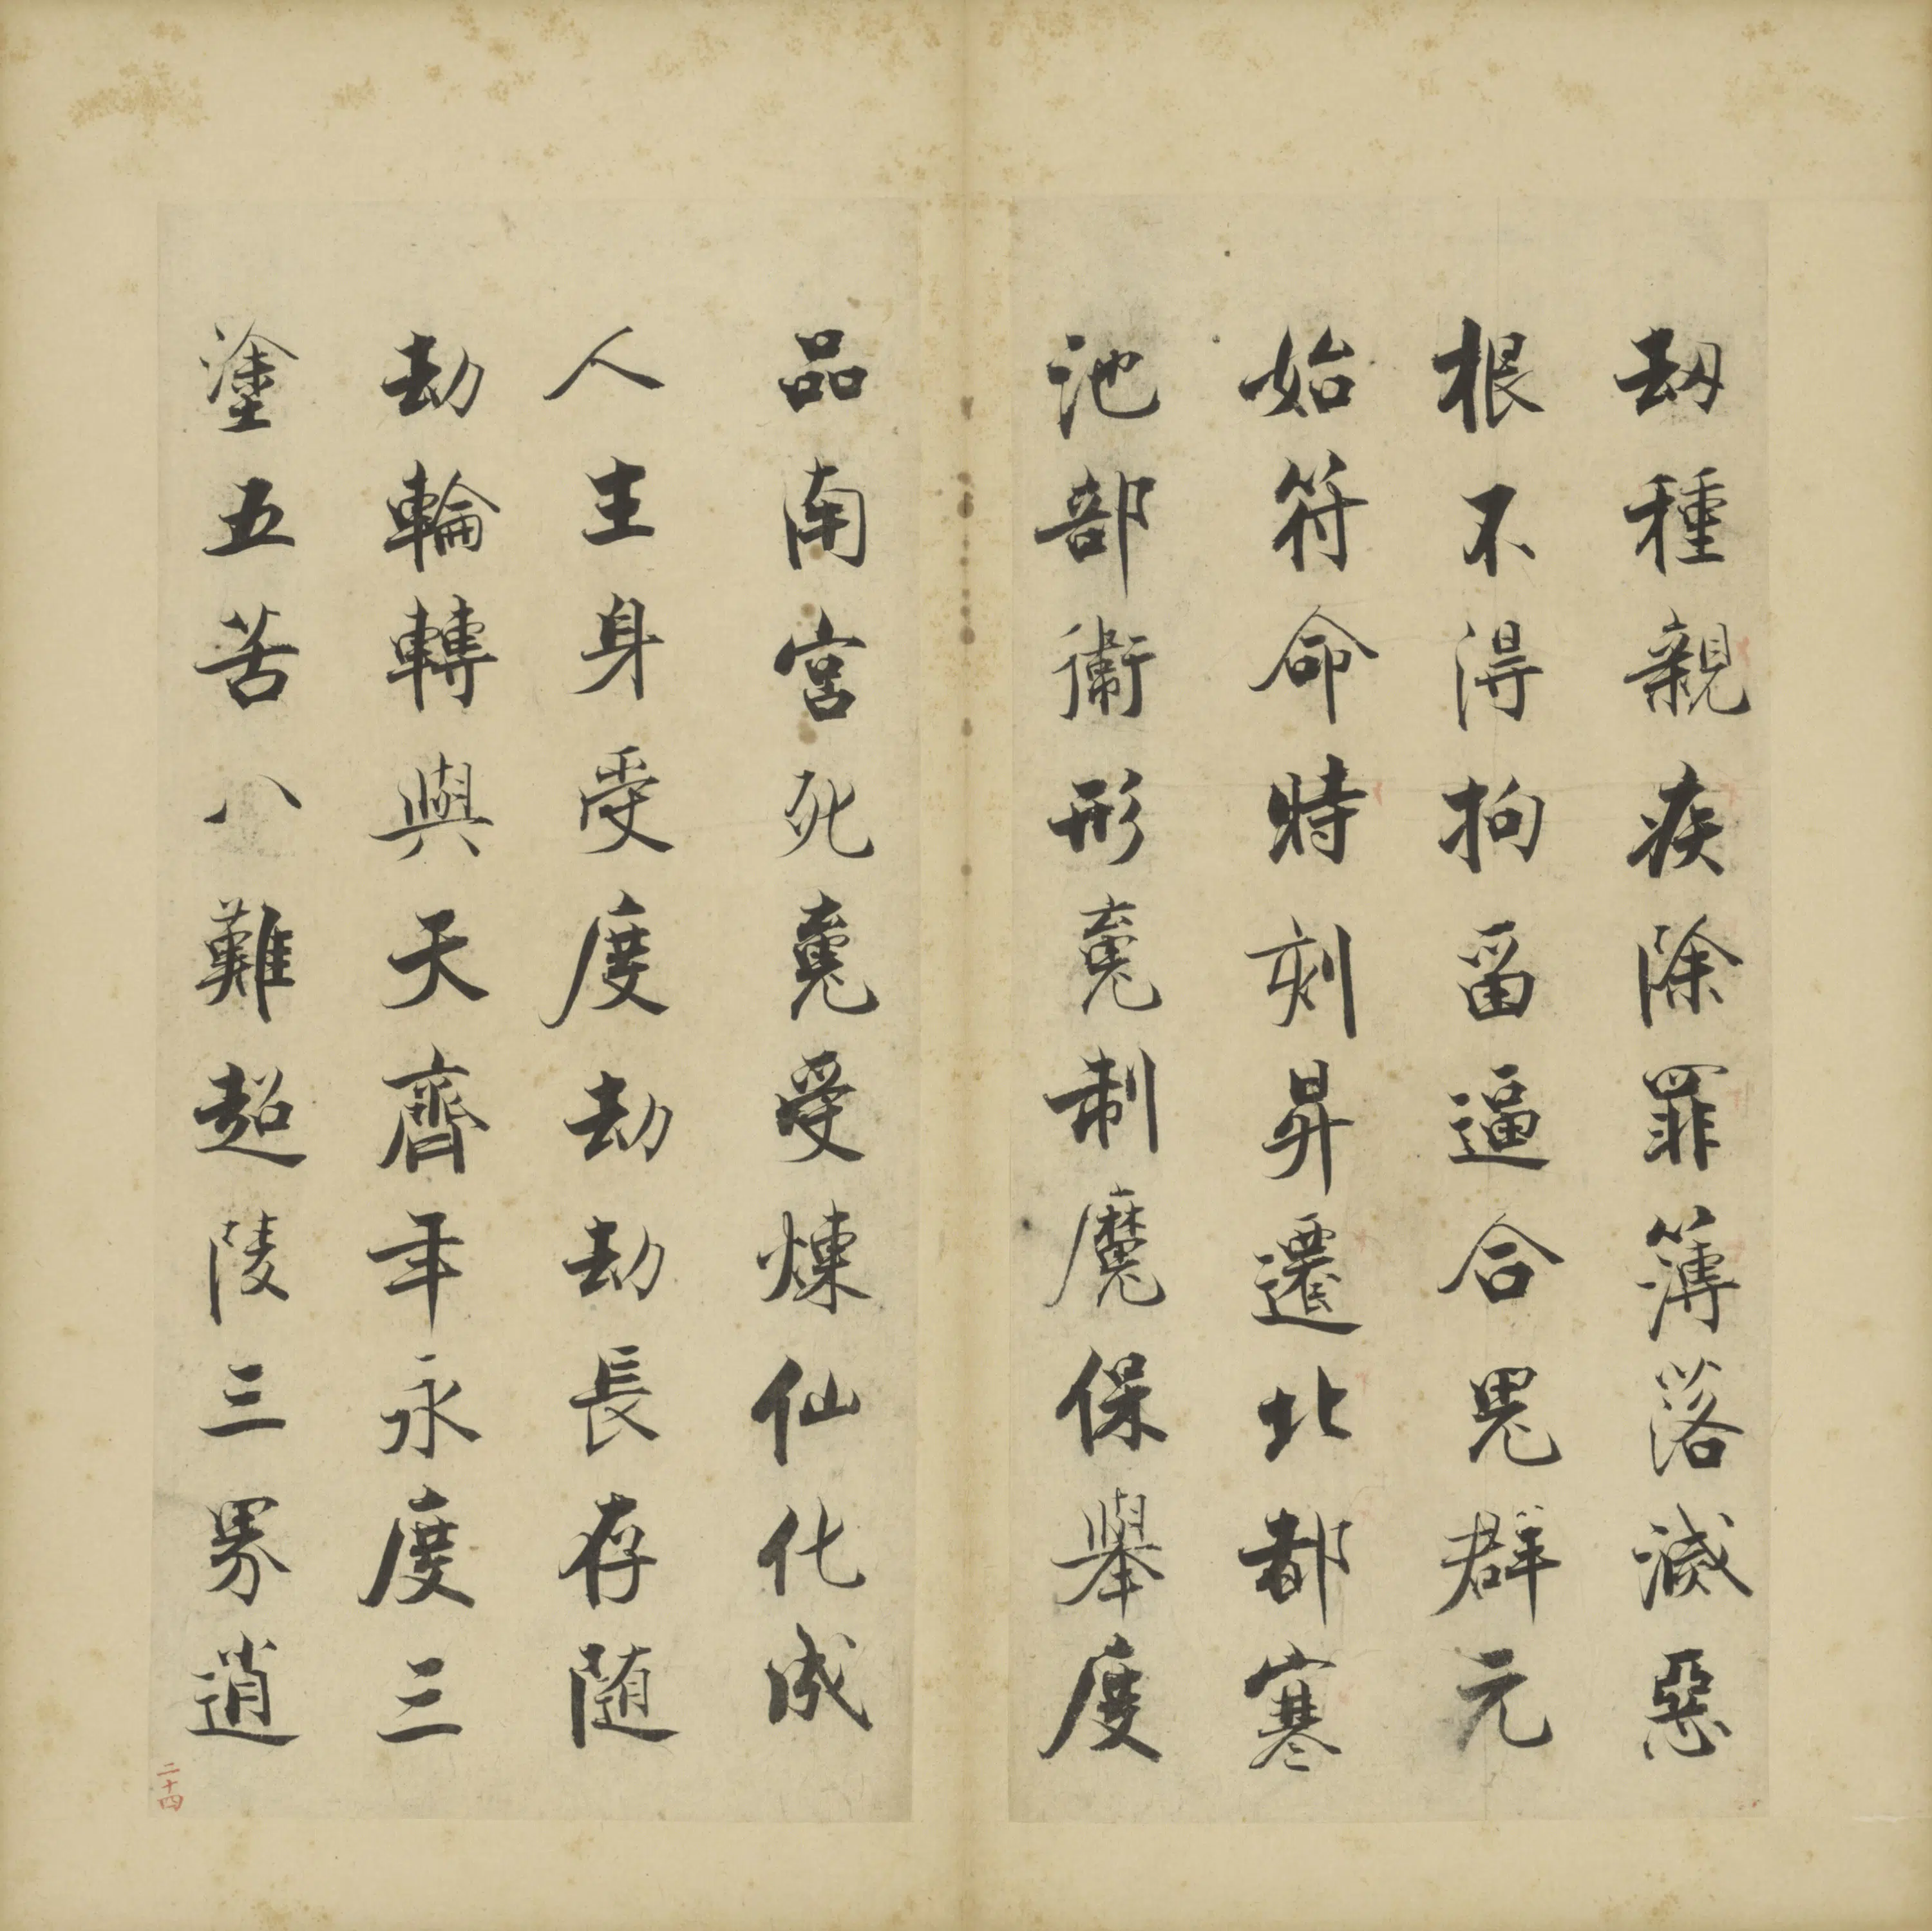 刼種親疾除罪簿落滅惡
根不得拘留逼合鬼群元
始符命時刻昇遷北都寒
池部衛形䰟制魔保舉度
品南宮死䰟受煉仙化成
人主身受度劫劫長存随
劫輪轉與天齊年永度三
塗五苦八難超陵三界逍
二十四